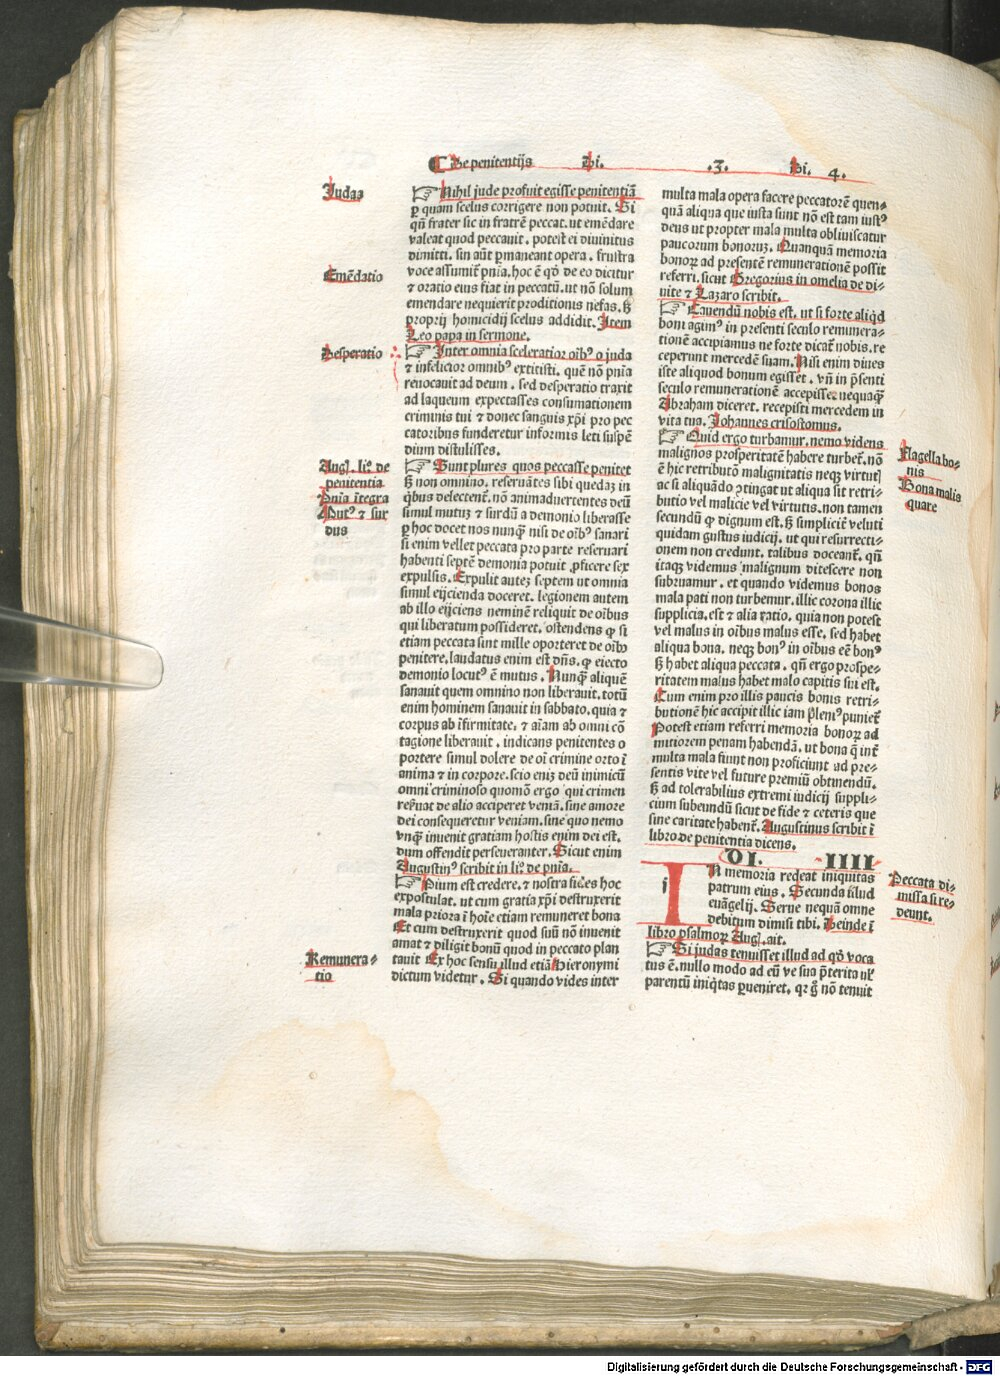 De penitentijs Di. .3. Di. 4.
Judas
☞ Nihil jude profuit egisse penitentiā
ꝑ quam scelus corrigere non potuit. Si
qn̄ frater sic in fratrē peccat. ut emēdare
valeat quod peccauit. potest ei diuinitus
dimitti. sin aūt ꝑmaneant opera. frustra
voce assumit᷑ pnīa. hoc ē qð de eo dicitur
Emēdatio
⁊ oratio eius fiat in peccatū. ut nō solum
emendare nequierit proditionis nefas. sꝫ
proprij homicidij scelus addidit. Item
Leo papa in sermone.
Desperatio
☞ Inter omnia sceleratior oībꝰ o juda
⁊ infelicior omnibꝰ extitisti. quē nō pnīa
reuocauit ad deum. sed desperatio traxit
ad laqueum expectasses consumationem
criminis tui ⁊ donec sanguis xp̄i pro pec
catoribus funderetur informis leti suspē
dium distulisses.
Augꝰ. li°. de
penitentia
Pnīa ītegra
Mutꝰ ⁊ sur
dus
☞ Sunt plures quos peccasse penitet
sꝫ non omnino. reseruātes sibi quedaꝫ in
qͥbus delectent᷑. nō animaduertentes deū
simul mutuꝫ ⁊ surdū a demonio liberasse
ꝑ hoc docet nos nunqꝫ nisi de oībꝰ sanari
si enim vellet peccata pro parte reseruari
habenti septē demonia potuit ꝓficere sex
expulsis. Expulit auteꝫ septem ut omnia
simul eijcienda doceret. legionem autem
ab illo eijciens neminē reliquit de oībus
qui liberatum possideret. ostendens ꝙ si
etiam peccata sint mille oporteret de oībꝰ
penitere. laudatus enim est dn̄s. ꝙ eiecto
demonio locutꝰ ē mutus. Nunqꝫ aliquē
sanauit quem omnino non liberauit. totū
enim hominem sanauit in sabbato. quia ⁊
corpus ab īfirmitate. ⁊ aīam ab omni cō
tagione liberauit. indicans penitentes o
portere simul dolere de oī crimine orto ī
anima ⁊ in corpore. scio eniꝫ deū inimicū
omni criminoso quomō ergo qui crimen
reẜuat de alio acciperet veniā. sine amore
dei consequeretur veniam. sine quo nemo
vnqꝫ inuenit gratiam hostis enim dei est.
dum offendit perseueranter. Sicut enim
Augustinꝰ scribit in li°. de pnīa.
☞ Pium est credere. ⁊ nostra fides hoc
expostulat. ut cum gratia xp̄i destruxerit
mala priora ī hoīe etiam remuneret bona
Et cum destruxerit quod suū nō inuenit
amat ⁊ diligit bonū quod in peccato plan
Remunera-
tio
tauit Ex hoc sensu illud etiā Hieronymi
dictum videtur. Si quando vides inter
multa mala opera facere peccatorē quen-
quā aliqua que iusta sunt nō est tam iustꝰ
deus ut propter mala multa obliuiscatur
paucorum bonoruꝫ. Quanquā memoria
bonoꝝ ad presentē remunerationē possit
referri. sicut Gregorius in omelia de di-
uite ⁊ Lazaro scribit.
☞ Cauendū nobis est. ut si forte aliqͥd
boni agimꝰ in presenti seculo remunera-
tionē accipiamus ne forte dicat᷑ nobis. re
ceperunt mercedē suam. Nisi enim diues
iste aliquod bonum egisset. vn̄ in p̄senti
seculo remunerationē accepisset nequaqꝫ
Abraham diceret. recepisti mercedem in
vita tua. Johannes crisostomus.
Flagella bo-
nis
Bona malis
quare
☞ Quid ergo turbamur. nemo videns
malignos prosperitatē habere turbet᷑. nō
ē hic retributō malignitatis neqꝫ virtutꝭ
ac si aliquādo ꝯtingat ut aliqua sit retri-
butio vel malicie vel virtutis. non tamen
secundū ꝙ dignum est. sꝫ simplicit᷑ veluti
quidam gustus iudicij. ut qui resurrecti-
onem non credunt. talibus doceant᷑. qn̄
itaqꝫ videmus malignum ditescere non
subruamur. et quando videmus bonos
mala pati non turbemur. illic corona illic
supplicia. est ⁊ alia ratio. quia non potest
vel malus in oībus malus esse. sed habet
aliqua bona. neqꝫ bonꝰ in oībus eē bonꝰ
sꝫ habet aliqua peccata. qn̄ ergo prospe-
ritatem malus habet malo capitis sui est.
Cum enim pro illis paucis bonis retri-
butionē hic accipit illic iam plenꝰ puniet᷑
Potest etiam referri memoria bonoꝝ ad
mitiorem penam habendā. ut bona q̄ int᷑
multa mala fiunt non proficiunt ad pre-
sentis vite vel future premiū obtinendū.
sꝫ ad tolerabilius extremi iudicij suppli-
cium subeundū sicut de fide ⁊ ceteris que
sine caritate habent᷑. Augustinus scribit ī
libro de penitentia dicens.
DI. IIII
Peccata di-
missa si re-
deunt.
IN memoria redeat iniquitas
patrum eius. Secunda illud
euāgelij. Serue nequā omne
debitum dimisi tibi. Deinde ī
libro psalmoꝝ Augꝰ. ait.
☞ Si judas tenuisset illud ad qð voca
tus ē. nullo modo ad eū vꝰ sua p̄terita uꝉ
parentū iniqͥtas ꝑueniret. qꝛ gͦ nō tenuit